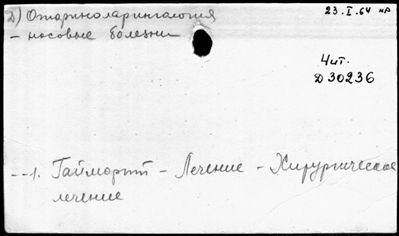 2) Оториноларингология
23.I.64 нр
- носовые болезни
Чит.
Д30236
--1. Гайморит - Лечение - Хирургическое
лечение